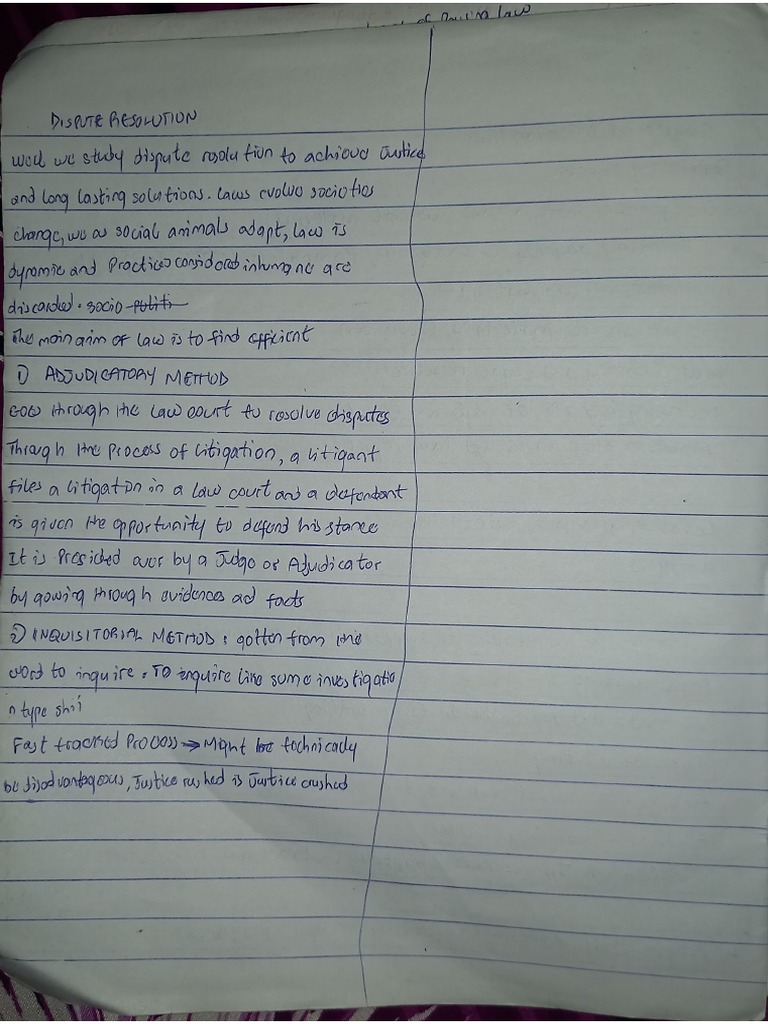 DISPUTE RESOLUTION
Well we study dispute resolution to achieve Justice
and long lasting solutions. Laws evolve societies
change, we as social animals adapt, law is
dynamic and Practices considered inhumane are
discarded. socio-politi
The main aim of law is to find efficient
1) ADJUDICATORY METHOD
Goes through the law court to resolve disputes
Through the Process of Litigation, a litigant
files a litigation in a law court and a defendant
is given the opportunity to defend his stance
It is Presided over by a Judge or Adjudicator
by gowing through evidences ad facts
2) INQUISITORIAL METHOD: gotten from the
word to inquire. To enquire like some investigatio
n type shii
Fast tracked Process → Might be technically
be disadvantageous, Justice rushed is Justice crushed